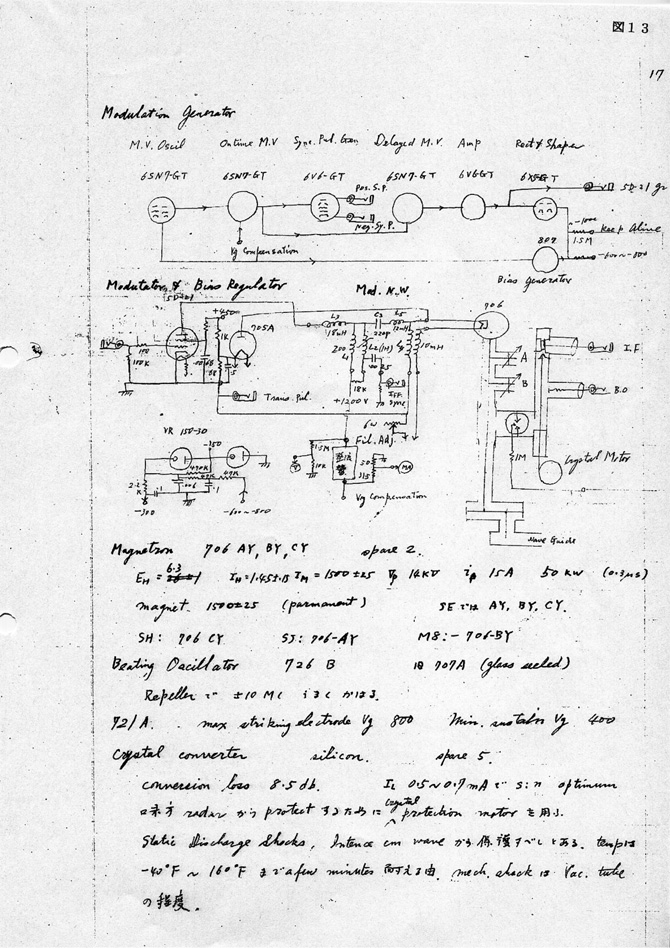 図13
17
Modulation Generator
M.V. Oscil Ontime M.V Sync. Pul. Gen Delayed M.V. Amp Rect & Shaper
6SN7-GT 6SN7-GT 6V6-GT 6SN7-GT 6V6GT 6X5GT
Pos. S.P.
Neg. S.P.
-1000
Keep Alive
1.5M
807
-600~-800
Vg Compensation
Bias Generator
Modutator & Bias Regulator Mod. N.W. 706
+450
705A
1K
L3
18mH
C3
220p
L5
12mH
10mH
200
L1
18K
+1200V
100K
Trans. Pul.
I.F
A
B
B.O
1M
Crystal Motor
6w
Fil. Adj.
VR 150-30
-150
470K
2.2K
.1
.006
-300
-600~-800
10K
Vg Compensation
Wave Guide
Magnetron 706 AY, BY, CY spare 2.
6.3
EH = IH=1.45±.15 IM=1500±25 Vp 14KV ip 15A 50 kw (0.3μs)
magnet. 1500±25 (parmanent) SEでは AY, BY, CY.
SH: 706 CY SJ: 706-AY M8:- 706-BY
Beating Oscillator 726 B 旧 707A (glass sealed)
Repeller で ±10 MC
721A. max striking electrode Vg 800 Min. sustain Vg 400
Crystal converter silicon. spare 5.
conversion loss 8.5 db. IL 0.5~0.7mA で s:n optimum
味方 radar から protect するために crystal protection motor を用ふ.
Static Discharge Shocks, Intence cm wave から保護すべしとある. tempは
-40°F ~ 160°F まで a few minutes 耐える由. mech. shock は Vac. tube
の程度.